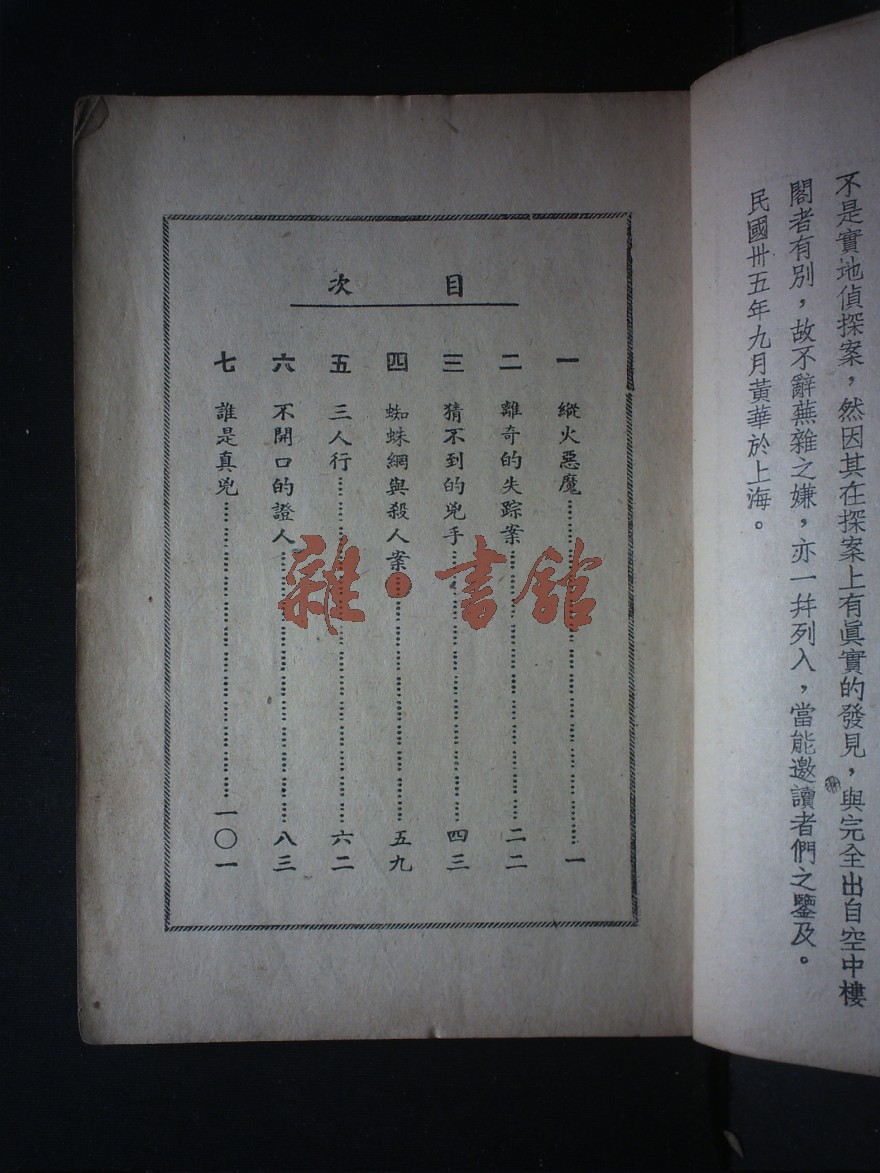 不是實地偵探案，然因其在探案上有眞實的發見，與完全出自空中樓
閣者有別，故不辭蕪雜之嫌，亦一幷列入，當能邀讀者們之鑒及。
民國卅五年九月黃華於上海。
目次
一 縱火惡魔……一
二 離奇的失踪案……二二
三 猜不到的兇手……四三
四 蜘蛛網與殺人案……五九
五 三人行……六二
六 不開口的證人……八三
七 誰是真兇……一〇一
雜·書館